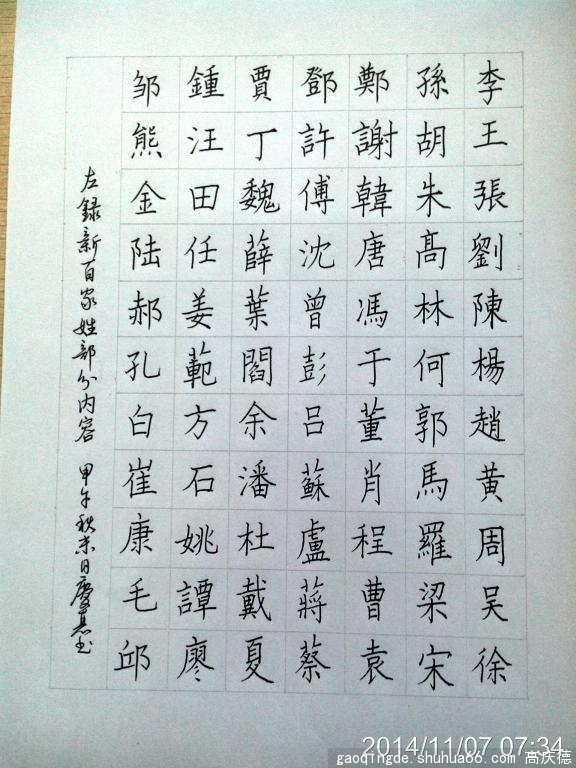 李王張劉陳楊趙黃周吴徐
孫胡朱髙林何郭馬羅梁宋
鄭謝韓唐馮于董肖程曹袁
鄧許傅沈曾彭吕蘇盧蔣蔡
賈丁魏薛葉閻余潘杜戴夏
鍾汪田任姜範方石姚譚廖
邹熊金陆郝孔白崔康毛邱
左録新百家姓部分内容 甲午秋末日慶德书
2014/11/07 07:34
gaoqingde.shuhua66.com 高庆德